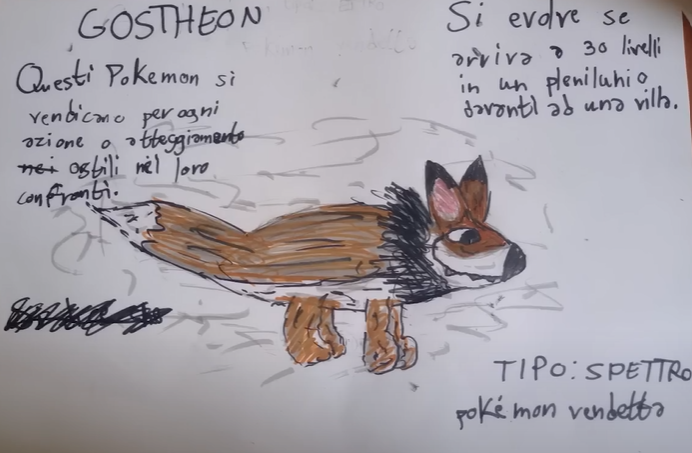 GOSTHEON
Questi Pokemon si
vendicano per ogni
azione o atteggiamento
ostili nel loro
confronti.
Si evolve se
arriva a 30 livelli
in un plenilunio
davanti ad una villa.
TIPO: SPETTRO
pokémon vendetta